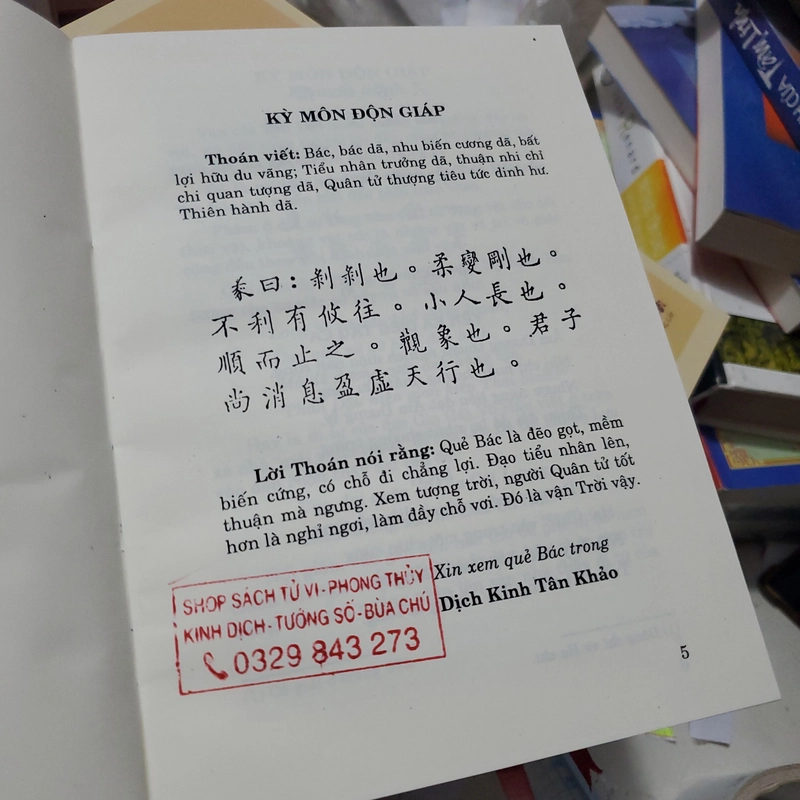 KỲ MÔN ĐỘN GIÁP
Thoán viết: Bác, bác dã, nhu biến cương dã, bất
lợi hữu du vãng; Tiểu nhân trưởng dã, thuận nhi chỉ
chi quan tượng dã, Quân tử thượng tiêu tức dinh hư.
Thiên hành dã.
彖曰：剝剝也。柔變剛也。
不利有攸往。小人長也。
順而止之。觀象也。君子
尚消息盈虛天行也。
Lời Thoán nói rằng: Quẻ Bác là đẽo gọt, mềm
biến cứng, có chỗ đi chẳng lợi. Đạo tiểu nhân lên,
thuận mà ngưng. Xem tượng trời, người Quân tử tốt
hơn là nghỉ ngơi, làm đầy chỗ vơi. Đó là vận Trời vậy.
Xin xem quẻ Bác trong
Dịch Kinh Tân Khảo
SHOP SÁCH TỬ VI-PHONG THỦY
KINH DỊCH-TƯỚNG SỐ-BÙA CHÚ
0329 843 273
5
CỦA TÂM LINH